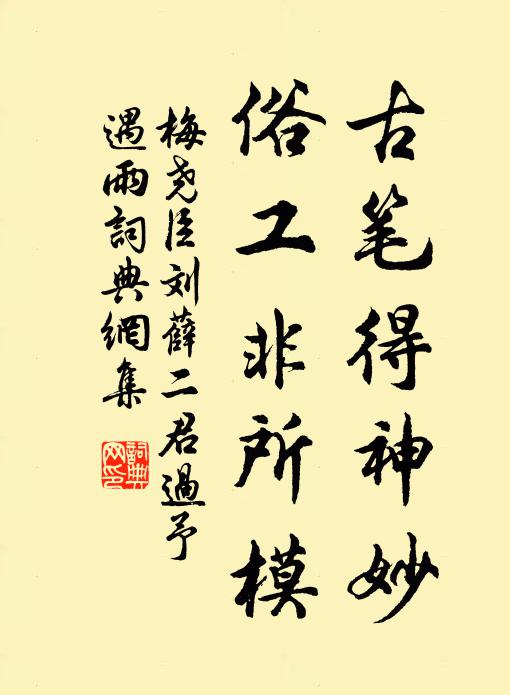 古笔得神妙
俗工非所模
梅尧臣刘薛二君過予
遇雨詞典網集
詞典
网印